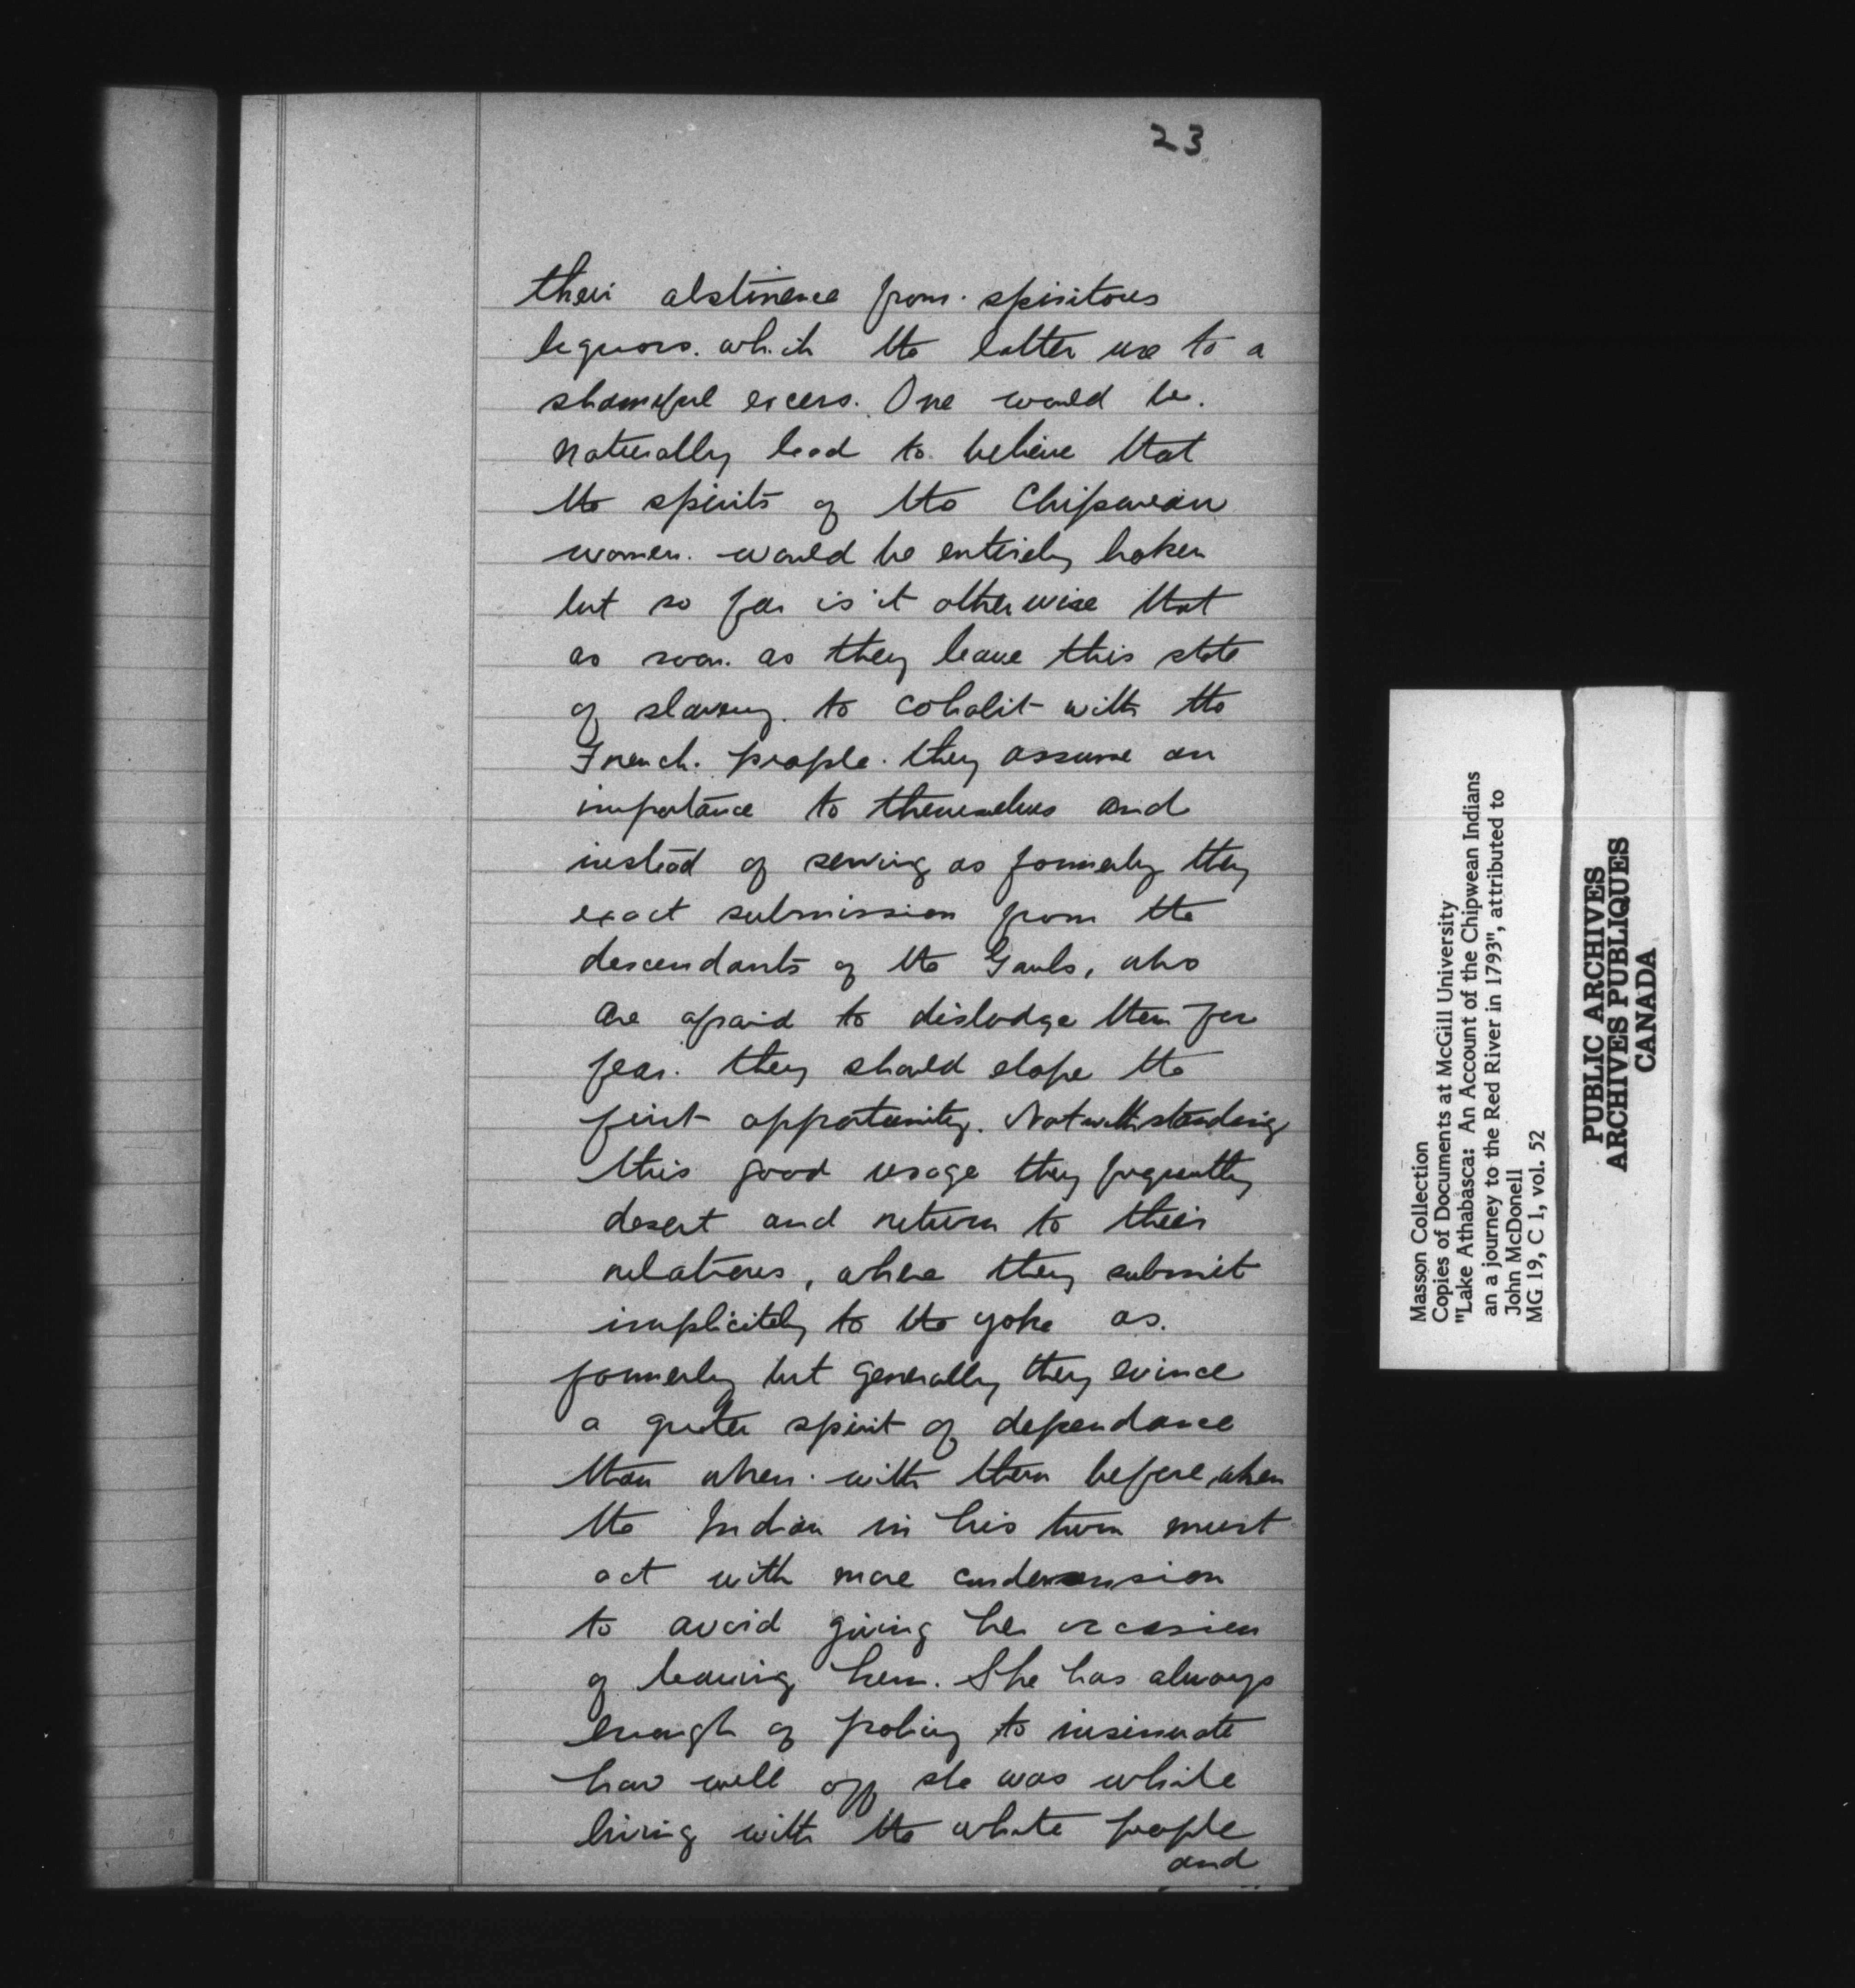 23
their abstinence from spiritous
liquors. which the latter use to a
shameful excess. One would be
naturally lead to believe that
the spirits of the Chipwean
women. would be entirely broken
but so far is it otherwise that
as soon as they leave this state
of slavery to cohabit with the
French people they assume an
importance to themselves and
instead of serving as formerly they
exact submission from the
descendants of the Gauls, who
are afraid to dislodge them for
fear they should elope the
first opportunity. Notwithstanding
this good usage they frequently
desert and return to their
relations, where they submit
implicitely to the yoke as
formerly but generally they evince
a greater spirit of dependance
than when with them before, when
the Indian in his turn must
act with more
to avoid giving her occasion
of leaving him. She has always
enough of policy to insinuate
how well off she was while
living with the white people
and
Masson Collection
Copies of Documents at McGill University
"Lake Athabasca: An Account of the Chipwean Indians
an a journey to the Red River in 1793", attributed to
John McDonell
MG 19, C 1, vol. 52
PUBLIC ARCHIVES
ARCHIVES PUBLIQUES
CANADA